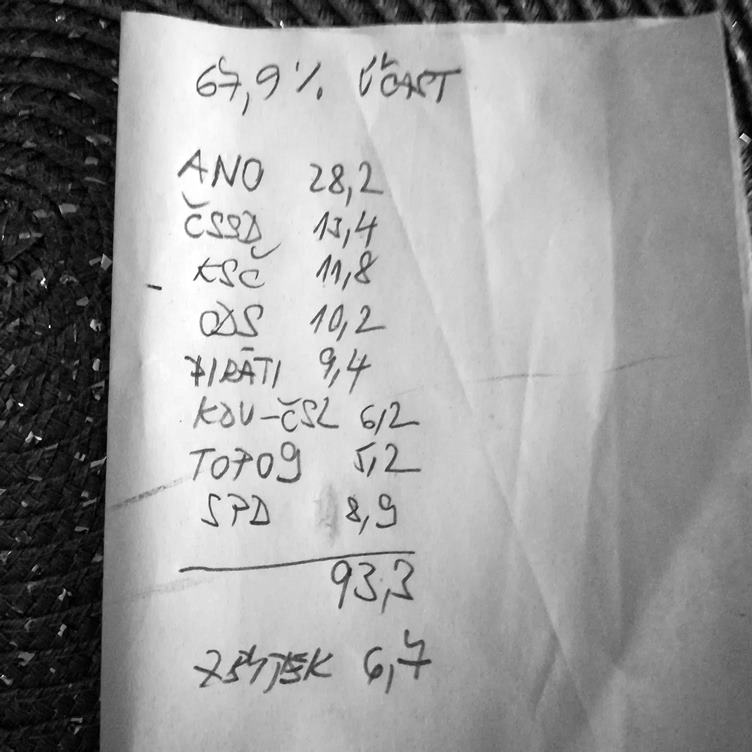 67,9% ÚČAST
ANO 28,2
ČSSD 13,4
KSČ 11,8
ODS 10,2
PIRÁTI 9,4
KDU-ČSL 6,2
TOP09 5,2
SPD 8,9
93,3
ZBYTEK 6,7